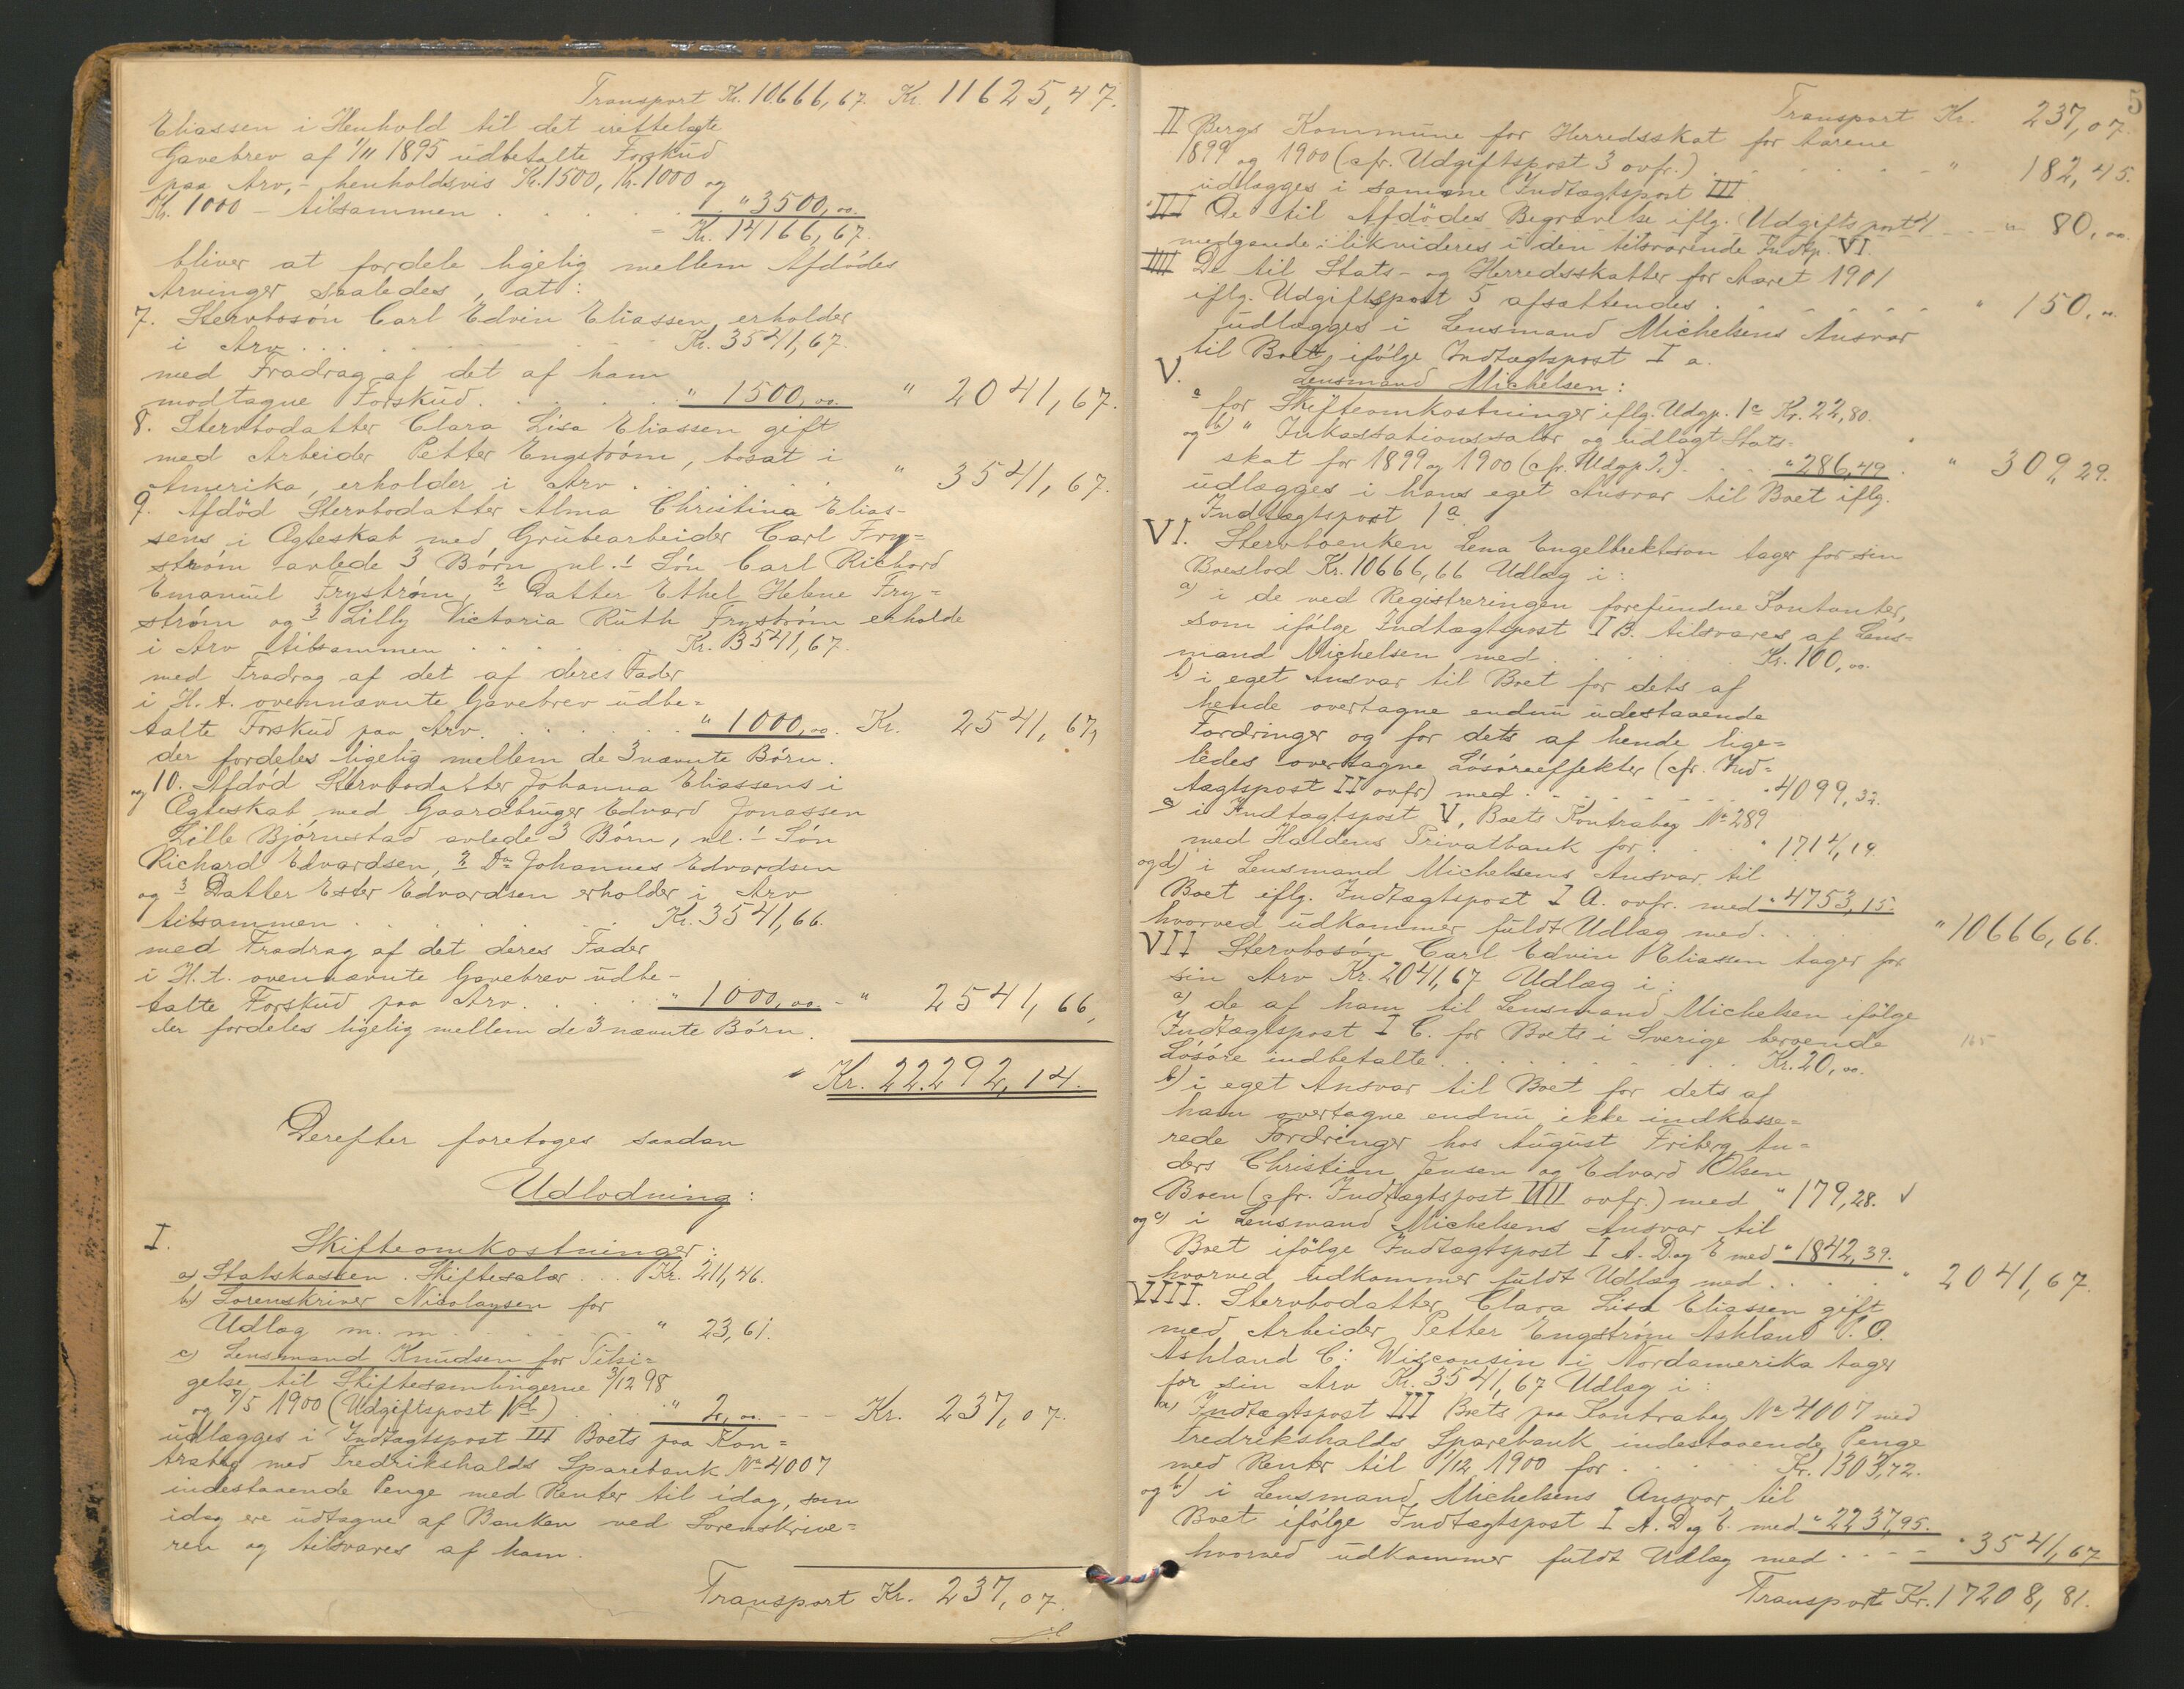 Transport Kr. 10666,67. Kr. 11625,47.
Eliassen i Henhold til det irettelagte
Gavebrev af 1/11 1895 udbetalte Forskud
paa Arv, - henholdsvis Kr. 1500, Kr. 1000 og
Kr. 1000 - tilsammen . . . . . " 3500,00.
= Kr. 14166,67.
bliver at fordele ligelig mellem Afdødes
Arvinger saaledes, at:
7. Stervbosøn Carl Edvin Eliassen erholder
i Arv . . . . Kr. 3541,67.
med Fradrag af det af ham
modtagne Forskud . . . . " 1500,00. " 2041,67.
8. Stervbodatter Clara Lisa Eliassen gift
med Arbeider Petter Engstrøm, bosat i
Amerika, erholder i Arv . . . . . " 3541,67.
9. Afdød Stervbodatter Alma Christina Elias-
sens i Ægteskab med Grubearbeider Carl Fry=
strøm avlede 3 Børn nl. 1 Søn Carl Richard
Emanuel Frystrøm, 2 Datter Ethel Helene Fry=
strøm og 3 Lilly Victoria Ruth Frystrøm erholde
i Arv tilsammen . . . . . Kr. 3541,67.
med Fradrag af det af deres Fader
i H. t. ovennævnte Gavebrev udbe=
talte Forskud paa Arv . . . . . " 1000,00. Kr. 2541,67,
der fordeles ligelig mellem de 3 nævnte Børn.
og 10. Afdød Stervbodatter Johanna Eliassens i
Ægteskab med Gaardbruger Edvard Jonassen
Lille Bjørnestad avlede 3 Børn, nl. 1 Søn
Richard Edvardsen, 2 Do Johannes Edvardsen
og 3 Datter Ester Edvardsen erholder i Arv
tilsammen . . . . . Kr. 3541,66.
med Fradrag af det deres Fader
i H. t. ovennævnte Gavebrev udbe-
talte Forskud paa Arv . . . . . " 1000,00. - " 2541,66,
der fordeles ligelig mellem de 3 nævnte Børn.
Kr. 22.292,14.
Derefter foretages saadan
Udlodning:
I. Skifteomkostninger:
a) Statskassen. Skiftesalær . . . Kr. 211,46.
b) Sorenskriver Nicolaysen for
Udlæg m. m. . . . . . " 23,61.
c) Lensmand Knudsen for Tilsi=
gelse til Skiftesamlingerne 3/12 98
og 7/5 1900 (Udgiftspost 1 b) . . " 2,00. - - - Kr. 237,07.
udlægges i Indtægtspost III Boets paa Kon=
trabog med Fredrikshalds Sparebank No 4007
indestaaende Penge med Renter til idag, som
idag ere udtagne af Banken ved Sorenskrive=
ren og tilsvares af ham.
Transport Kr. 237,07.
5
Transport Kr. 237,07.
II Bergs Kommune for Herredsskat for Aarene
1899 og 1900 (cfr. Udgiftspost 3 ovfr.) . . . . . . " 182,45.
udlægges i samme Indtægtspost III
III De til Afdødes Begravelse iflg. Udgiftspost 4 . . . " 80,00.
medgaaede: likvideres i den tilsvarende Indtp. VI.
IIII De til Stats- og Herredsskatter for Aaret 1901
iflg. Udgiftspost 5 afsættendes . . . . . . " 150,00
udlægges i Lensmand Michelsens Ansvar
til Boet ifølge Indtægtspost I a.
V. Lensmand Michelsen:
a for Skifteomkostninger iflg. Udgp. 1 c Kr. 22,80.
og b) " Inkassationssalær og udlagt Stats-
skat for 1899 og 1900 (cfr. Udgp 2.) . . . " 286,49. " 309,29.
udlægges i hans eget Ansvar til Boet iflg.
Indtægtspost 1 a
VI. Stervboenken Lena Engelbrektson tager for sin
Boeslod Kr. 10666,66 Udlæg i:
a) i de ved Registreringen forefundne Kontanter,
som ifølge Indtægtspost I B. tilsvares af Lens-
mand Michelsen med . . . . . Kr. 100,00.
b) i eget Ansvar til Boet for dets af
hende overtagne endnu udestaaende
Fordringer og for dets af hende lige=
ledes overtagne Løsøreeffekter (cfr. Ind=
tægtspost II ovfr) med . . . . . " 4099,32.
c) i Indtægtspost V, Boets Kontrabog No 289
med Haldens Privatbank for . . . " 1714,19.
og d) i Lensmand Michelsens Ansvar til
Boet iflg. Indtægtspost I A. ovfr. med " 4753,15.
hvorved udkommer fuldt Udlæg med . . . . " 10666,66.
VII Stervbosøn Carl Edvin Eliassen tager for
sin Arv Kr. 2041,67 Udlæg i:
a) de af ham til Lensmand Michelsen ifølge
Indtægtspost I C. for Boets i Sverige beroende
Løsøre indbetalte . . . . . Kr. 20,00.
b) i eget Ansvar til Boet for dets af
ham overtagne endnu ikke indkasse=
rede Fordringer hos August Friberg, An=
ders Christian Jensen og Edvard Olsen
Boen (cfr. Indtægtspost IIII ovfr.) med " 179,28.
og c) i Lensmand Michelsens Ansvar til
Boet ifølge Indtægtspost I A. D. og E med " 1842,39.
hvorved udkommer fuldt Udlæg med . . . " 2041,67.
VIII. Stervbodatter Clara Lisa Eliassen gift
med Arbeider Petter Engstrøm Ashland P. O.
Ashland C: Wisconsin i Nordamerika tager
for sin Arv Kr. 3541,67 Udlæg i:
a) Indtægtspost III Boets paa Kontrabog No 4007 med
Fredrikshalds Sparebank indestaaende Penge
med Renter til 1/12 1900 for . . . . Kr. 1303,72.
og b) i Lensmand Michelsens Ansvar til
Boet ifølge Indtægtspost I A. D. og E. med " 2237,95.
hvorved udkommer fuldt Udlæg med . . . . " 3541,67
Transport Kr. 17208,81.